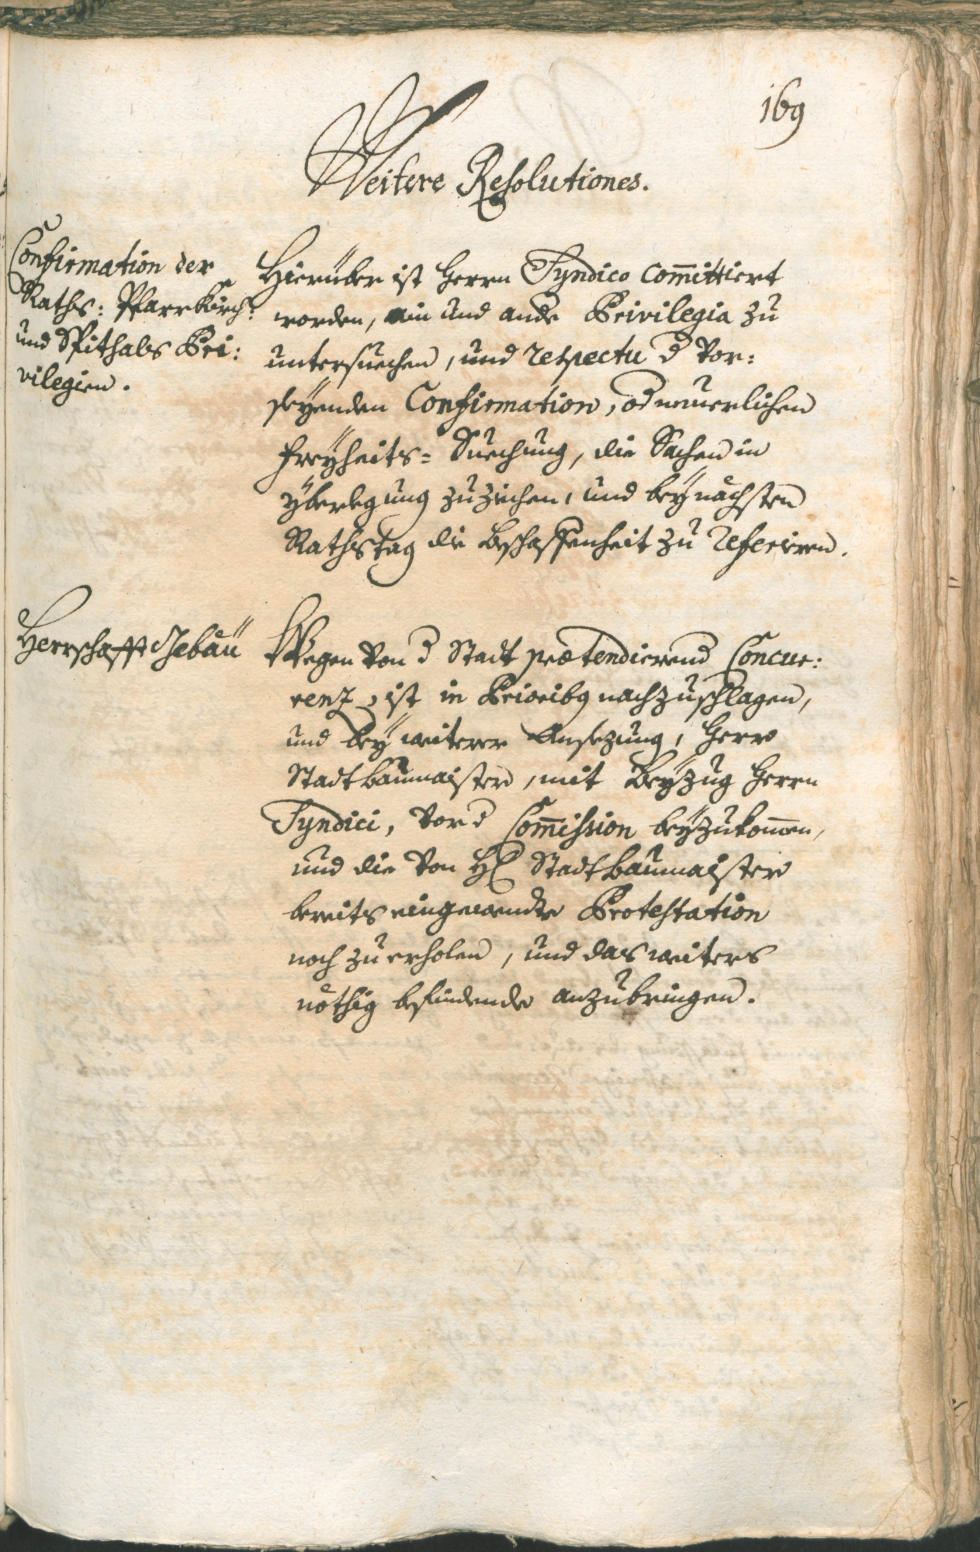 169
Weitere Resolutiones.
Confirmation der
Raths: Pfarrkirch:
und Spithals Pri:
vilegien.
Hierüber ist Herrn Syndico committiert
worden, ain und ande Privilegia zu
untersuechen, und respectu d vor:
seyenden Confirmation, od neuerlichen
freyheits= Suechung, die Sachen in
yberlegung zu ziehen, und bey nächsten
Rathstag die beschaffenheit zu referiren.
Herrschafft Gebäu
Wegen von d Stadt prætendierend Concur:
renz, ist in Prioribg nachzuschlagen,
und bey weiterer Ansezung, Herr
Stadtbaumaister, mit Beyzug Herrn
Syndici, vor d Commission beyzukommen,
und die von H Stadtbaumaister
bereits eingewendte Protestation
noch zu erholen, und das weiters
nöthig befindende anzubringen.